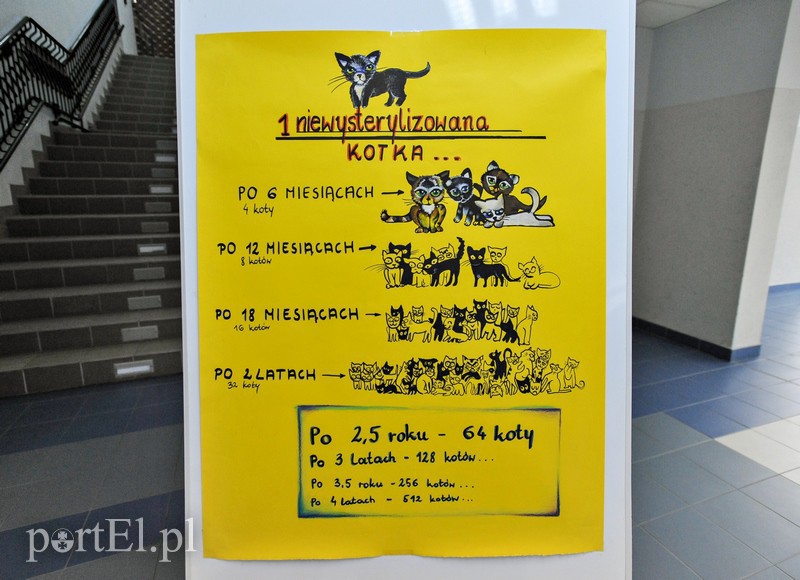 1 niewysterylizowana
KOTKA ...
PO 6 MIESIĄCACH →
4 koty
PO 12 MIESIĄCACH →
8 kotów
PO 18 MIESIĄCACH →
16 kotów
PO 2 LATACH →
32 koty
Po 2,5 roku - 64 koty
Po 3 Latach - 128 kotów...
Po 3,5 roku - 256 kotów...
Po 4 latach - 512 kotów...
portEl.pl